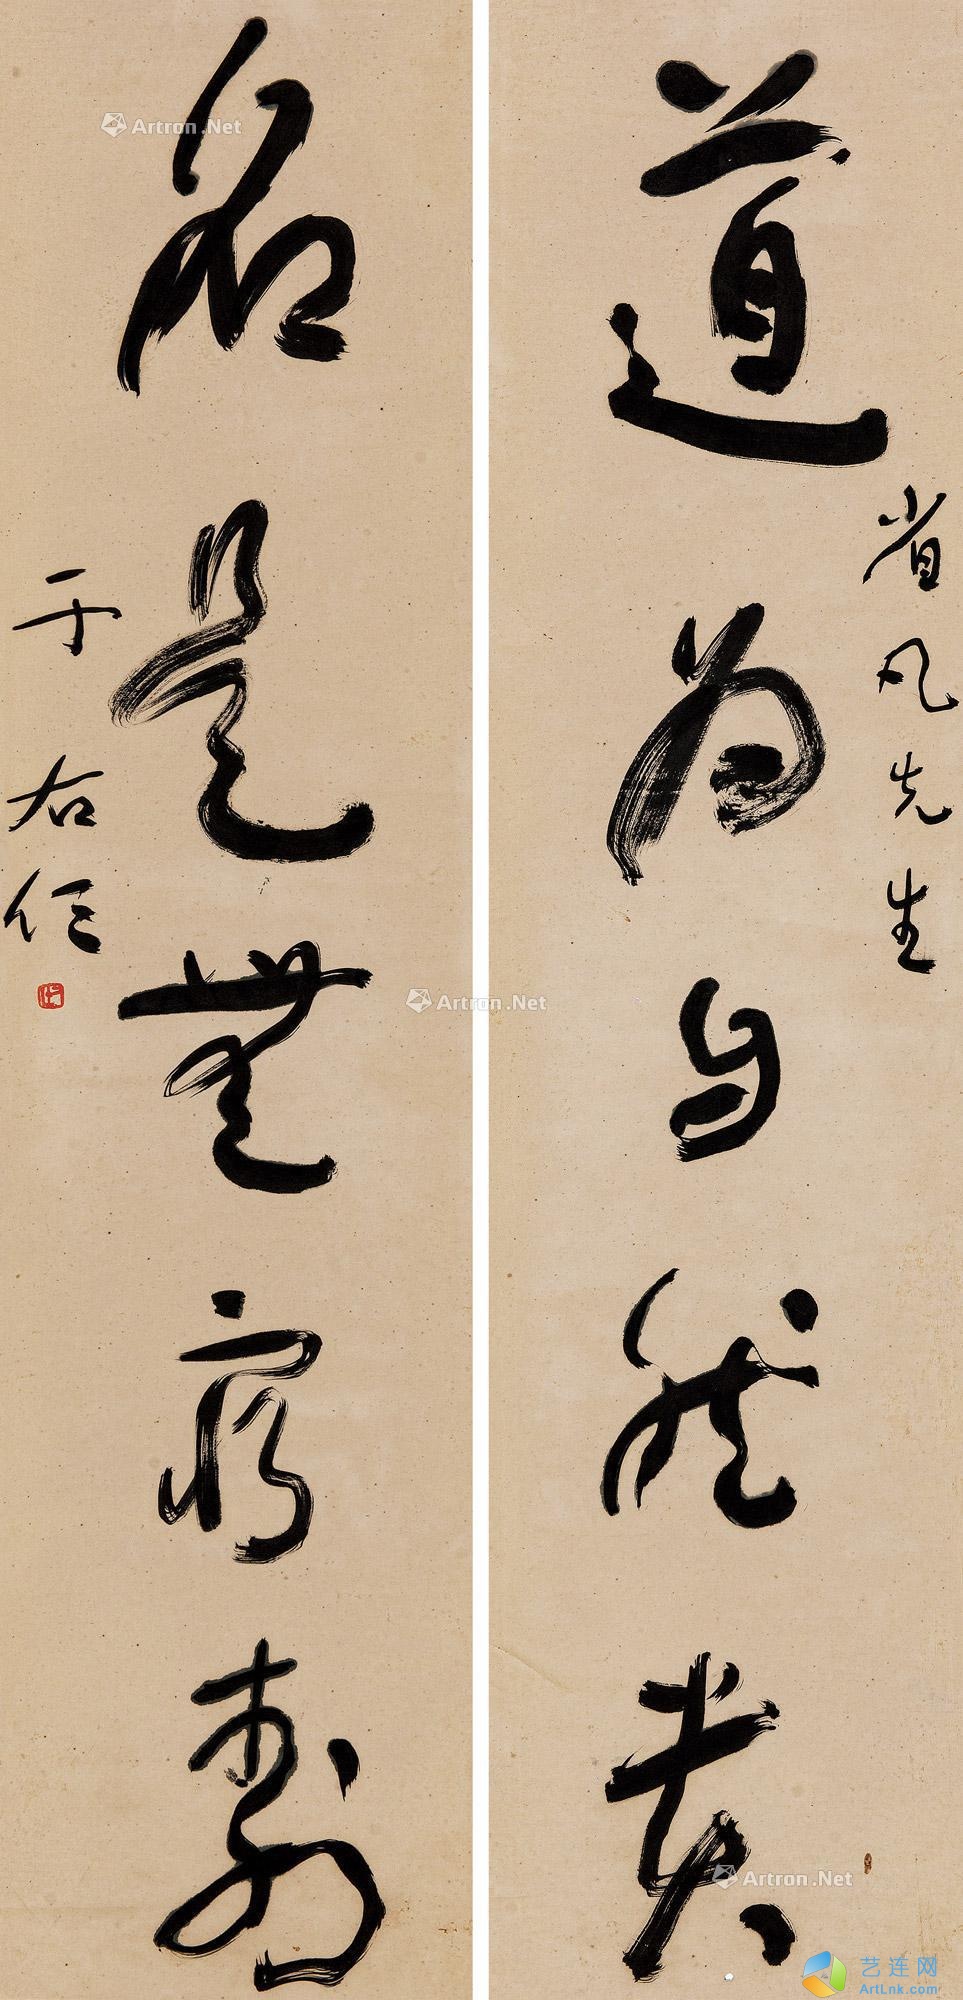 道为自然贵
省凡先生
名是無窮壽
于右任
Artron.Net
Artron.Net
Artron.Net
艺连网
ArtLnk.com